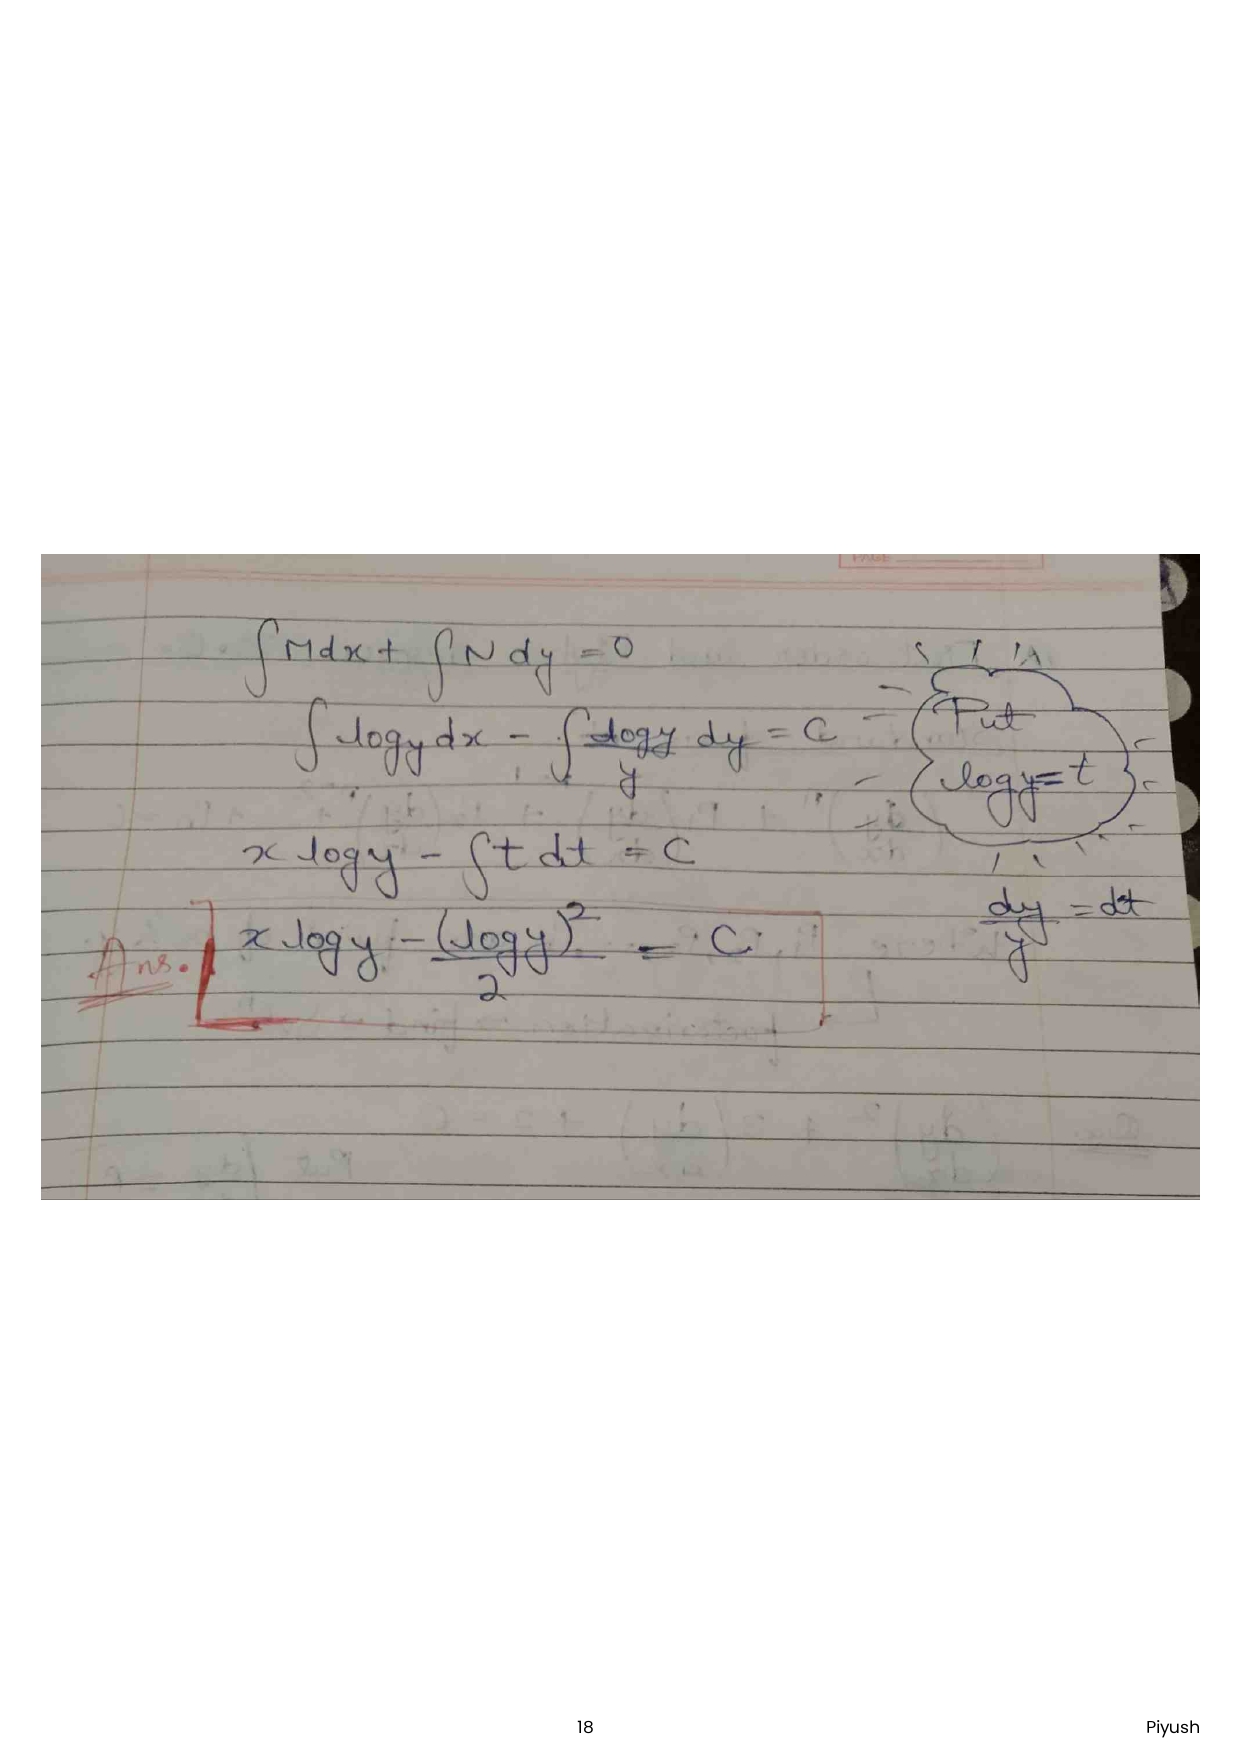 PAGE
∫Mdx + ∫N dy = 0
∫ logy dx - ∫ logy/y dy = C
Put
logy = t
x logy - ∫t dt = C
dy/y = dt
Ans. x logy - (logy)²/2 = C
18
Piyush